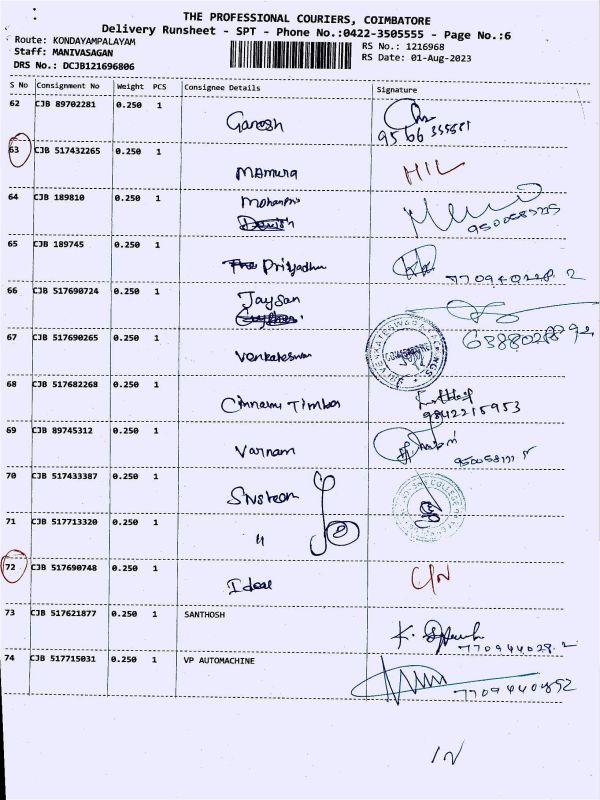 THE PROFESSIONAL COURIERS, COIMBATORE
Delivery Runsheet - SPT - Phone No.:0422-3505555 - Page No.:6
Route: KONDAYAMPALAYAM
Staff: MANIVASAGAN
DRS No.: DCJB121696806
RS No.: 1216968
RS Date: 01-Aug-2023
S No Consignment No Weight PCS Consignee Details Signature
62 CJB 89702281 0.250 1
Ganesh
63 CJB 517432265 0.250 1
Mamura HIL
64 CJB 189810 0.250 1
65 CJB 189745 0.250 1
Priyadhu
66 CJB 517690724 0.250 1
Jaysan
67 CJB 517690265 0.250 1
68 CJB 517682268 0.250 1
Cinnami Timber
9842215953
69 CJB 89745312 0.250 1
Varnam
70 CJB 517433387 0.250 1
71 CJB 517713320 0.250 1
"
72 CJB 517690748 0.250 1
Ideal C/N
73 CJB 517621877 0.250 1 SANTHOSH
74 CJB 517715031 0.250 1 VP AUTOMACHINE